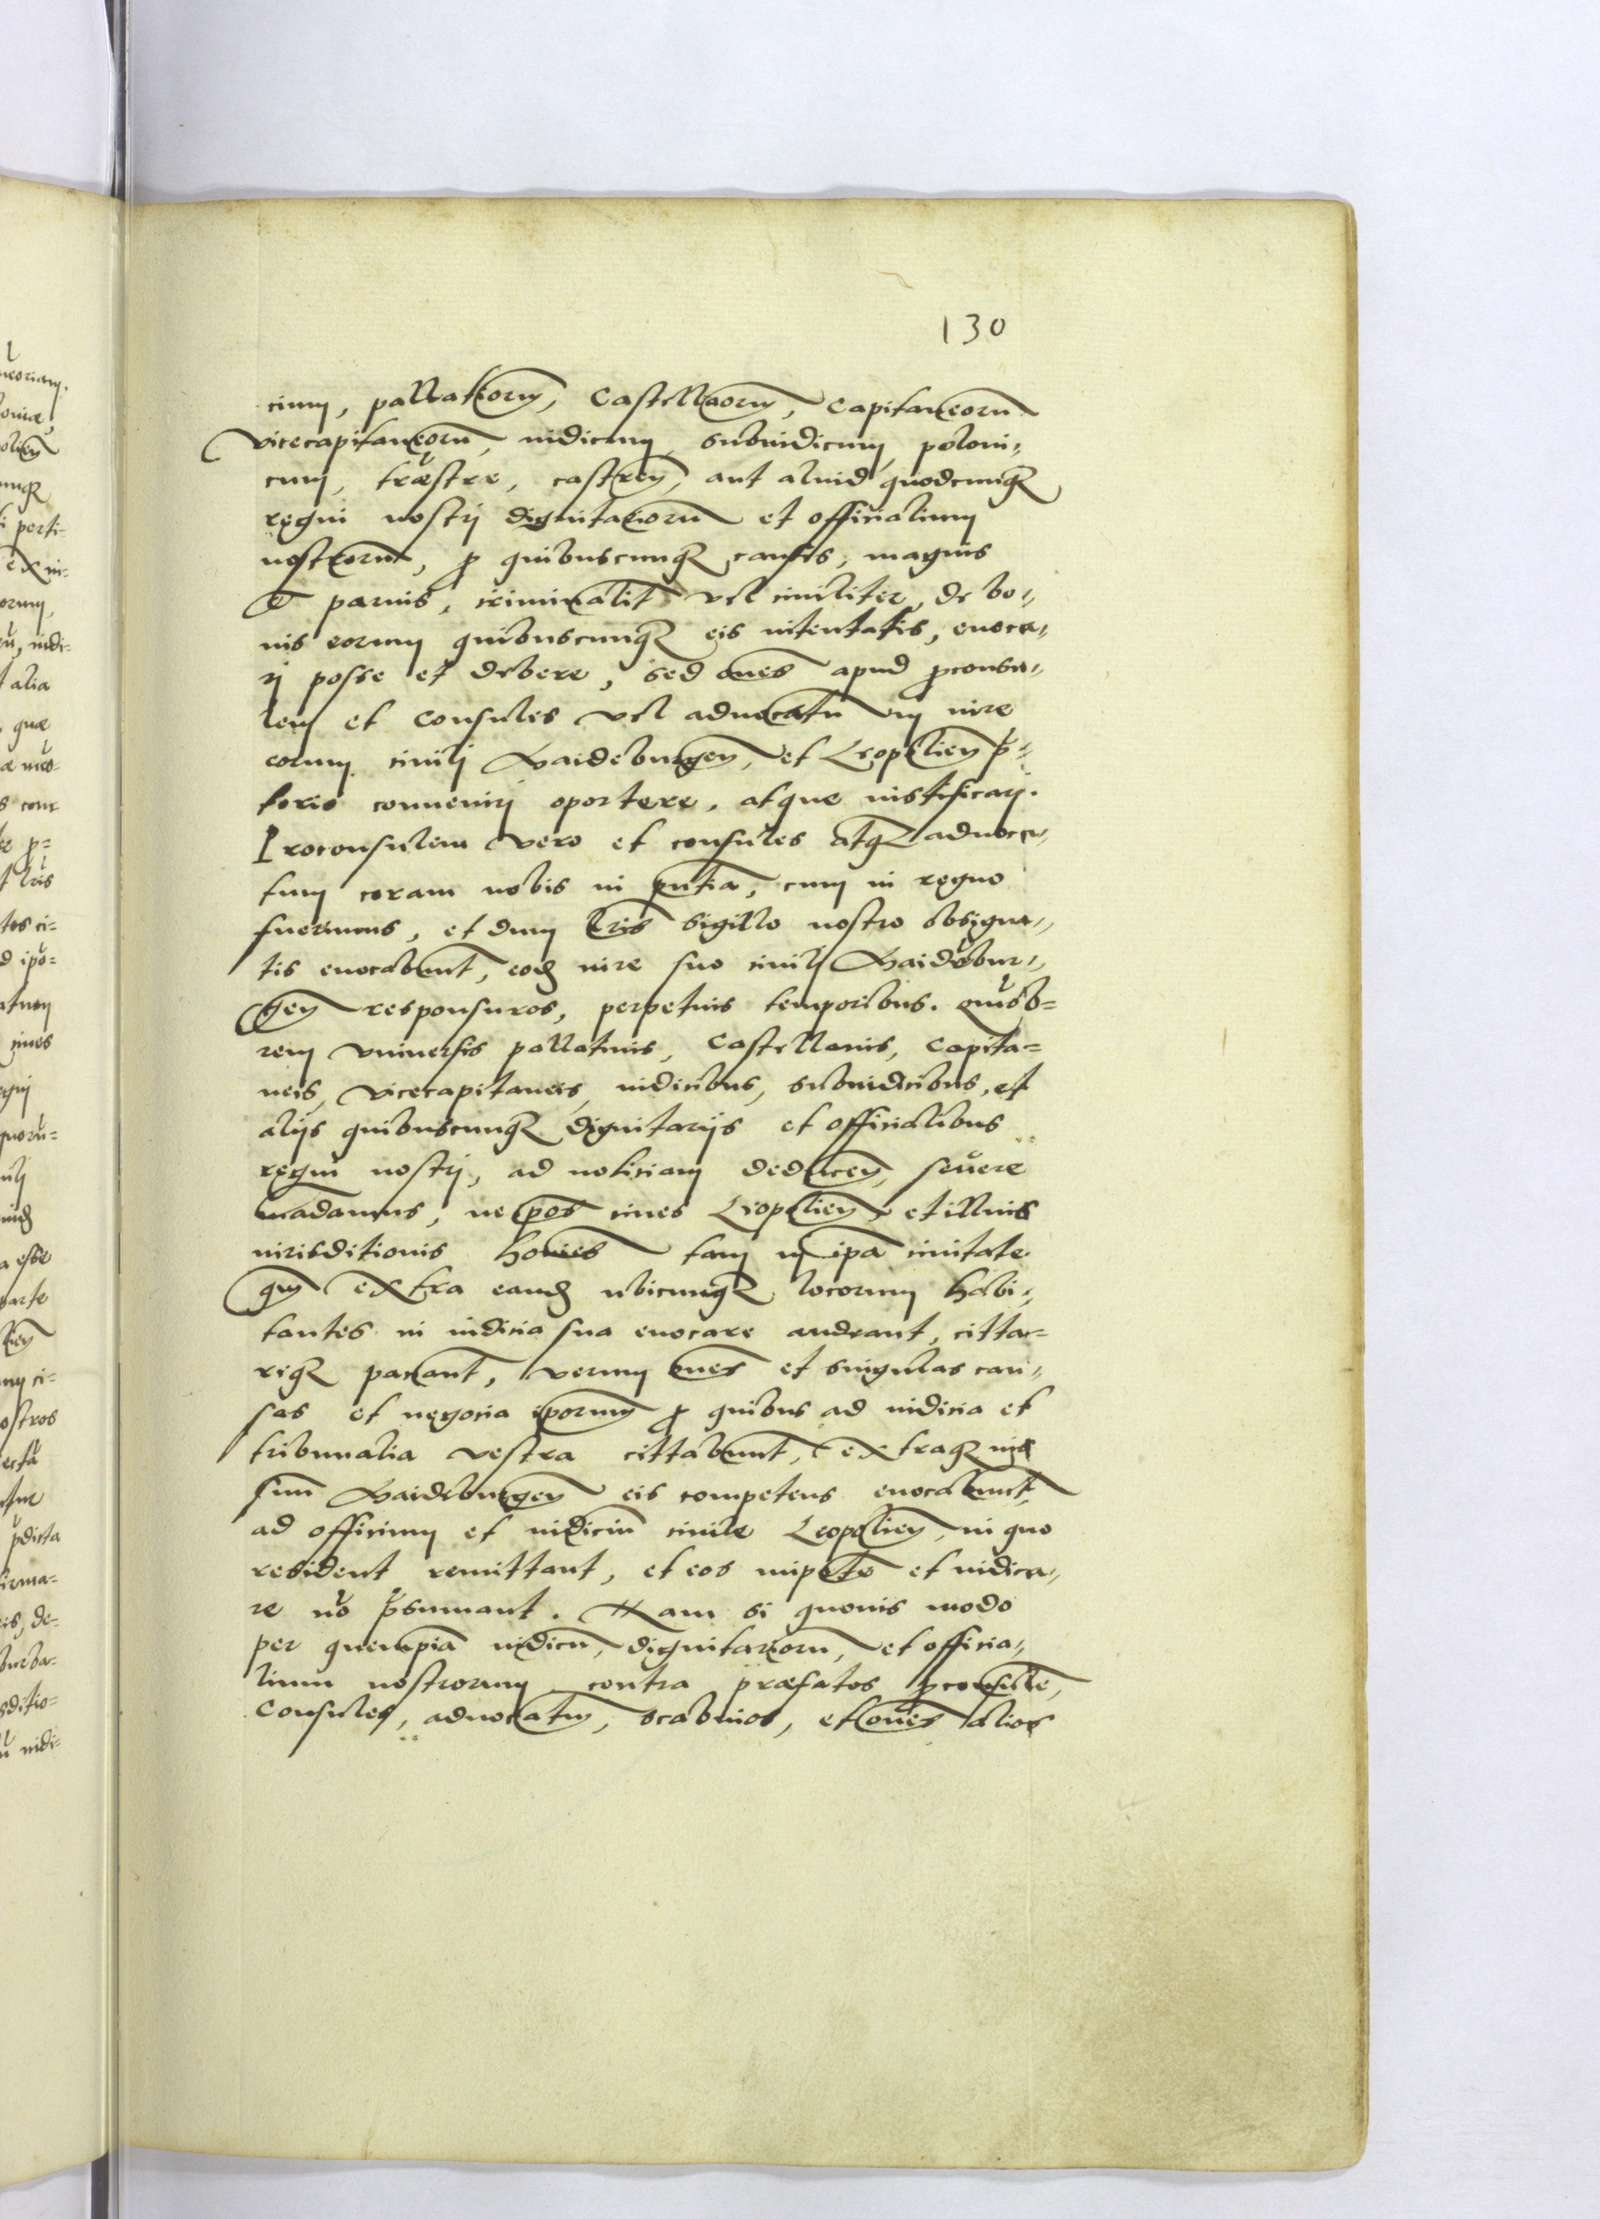 130
cium, pallatiorum, Castellaorum, Capitaneorum
vicecapitaneorum, iudicum, subiudicum, poloni-
cum, træstre, castren, aut aliud quodcunq3
regni nostrj dignitariorum et officialium
nostrorum, p quibuscunq3 causis, magnis
et paruis, criminalit vel ciuiliter, de bo-
nis eorum quibuscunq3 eis intentatis, euoca-
rj posse et debere, sed ones apud pconsu-
lem et Consules vel aduocatu in iure
eorum ciuilj Maideburgen, et Leopolien p-
torio conuenirj oportere, atque iustificarj.
Proconsulem vero et consules atq3 aduoca-
tum coram nobis in pntia, cum in regno
fuerimus, et dum lris sigillo nostro obsigna-
tis euocabunt, eod iure suo ciuilj Maidebur-
gen responsuros, perpetuis temporibus. Quãob-
rem vniuersis pallatinis, Castellanis, Capita-
neis, vicecapitaneis, iudicibus, subiudicibus, et
alijs quibuscunq3 dignitarijs et officialibus
regni nostrj, ad noticiam deducen, seuere
mãdamus, ne pos ciues Leopolien, et illius
iurisditionis hoïes tam in ipa ciuitate
qm extra eand ubicunq3 locorum habi-
tantes in iudicia sua euocare audeant, citta-
riq3 faciant, verum ones et singulas cau-
sas et negocia iporum p quibus ad iudicia et
tribunalia vestra cittabunt, extraq3 ius
suu Maideburgen eis competens euocabunt,
ad officium et iudiciu ciuile Leopolien, in quo
resident remittant, et eos impete et iudica-
re no psumant. Nam si quouis modo
per quempia iudicu, dignitariorum, et officia-
lium nostrorum contra præfatos pconsule,
Consules, aduocatum, scabinos, et oues alios